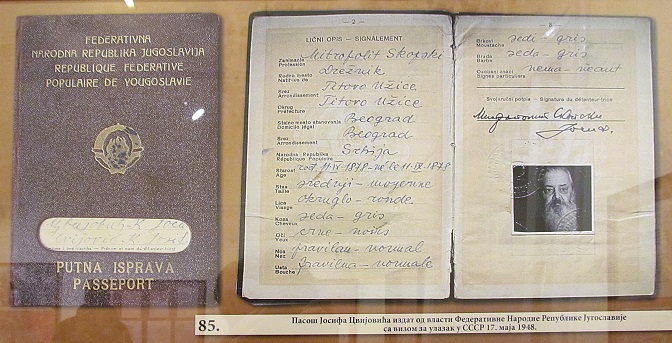 FEDERATIVNA
NARODNA REPUBLIKA JUGOSLAVIJA
REPUBLIQUE FEDERATIVE
POPULAIRE DE YOUGOSLAVIE
PUTNA ISPRAVA
PASSEPORT
– 2 –
LIČNI OPIS – SIGNALEMENT
Zanimanje Mitropolit Skopski
Profession
Rodno mesto Drežnik
Natif-ve de
Srez Titovo Užice
Arrondissement
Okrug Titovo Užice
Préfecture
Stalno mesto stanovanja Beograd
Domicile légal
Srez Beograd
Arrondissement
Narodna Republika Srbija
République Populaire
Starost rođ. 11-IV-1878 – né le 11-IX-1878
Age
Stas srednji – moyenne
Taille
Lice okruglo – ronde
Visage
Kosa seda – gris
Cheveux
Oči crne – noirs
Yeux
Nos pravilan – normal
Nez
Usta pravilna – normale
Bouche
Brkovi sedi – gris
Moustache
Brada seda – gris
Barbe
Osobeni znaci nema – néant
Signes particuliers
Svojeručni potpis – Signature du détenteur-trice
85.
Пасош Јосифа Цвијовића издат од власти Федеративне Народне Републике Југославије
са визом за улазак у СССР 17. маја 1948.